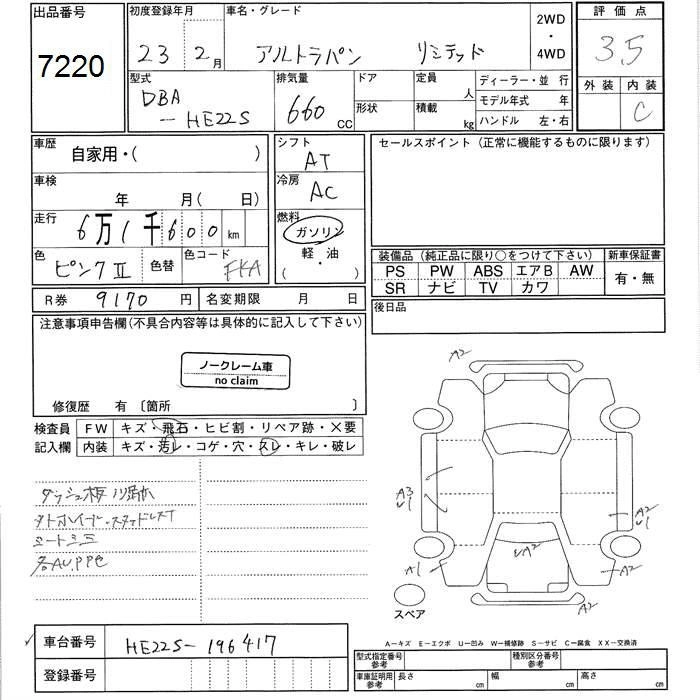 出品番号 初度登録年月 車名・グレード 2WD・4WD 評価点
7220 23年 2月 アルトラパン リミテッド 3.5
外装 内装
C
型式 排気量 ドア 定員 人 ディーラー・並行
DBA 660 cc 形状 積載 kg モデル年式 年
-HE22S ハンドル 左・右
車歴 自家用・( ) シフト AT セールスポイント (正常に機能するものに限ります)
車検 年 月( 日) 冷房 AC
走行 6万1千600km 燃料 ガソリン 軽・油 ( )
色 ピンクII 色替 色コード
装備品 (純正品に限り○をつけて下さい) 新車保証書
PS PW ABS エアB AW 有・無
SR ナビ TV カワ
R券 9170円 名変期限 月 日 後日品
注意事項申告欄(不具合内容等は具体的に記入して下さい)
ノークレーム車
no claim
修復歴 有 〔箇所 〕
検査員 FW キズ・飛石・ヒビ割・リペア跡・X要
記入欄 内装 キズ・汚レ・コゲ・穴・スレ・キレ・破レ
A2
A3
U1
A2
U1
A1
A2
A2
A2
シートシミ
スペア
A-キズ E-エクボ U-凹み W-補修跡 S-サビ C-腐食 XX-交換済
車台番号 HE22S-196417
登録番号
型式指定番号 参考 種別区分番号 参考
車庫証明用 参考 長さ cm 幅 cm 高さ cm